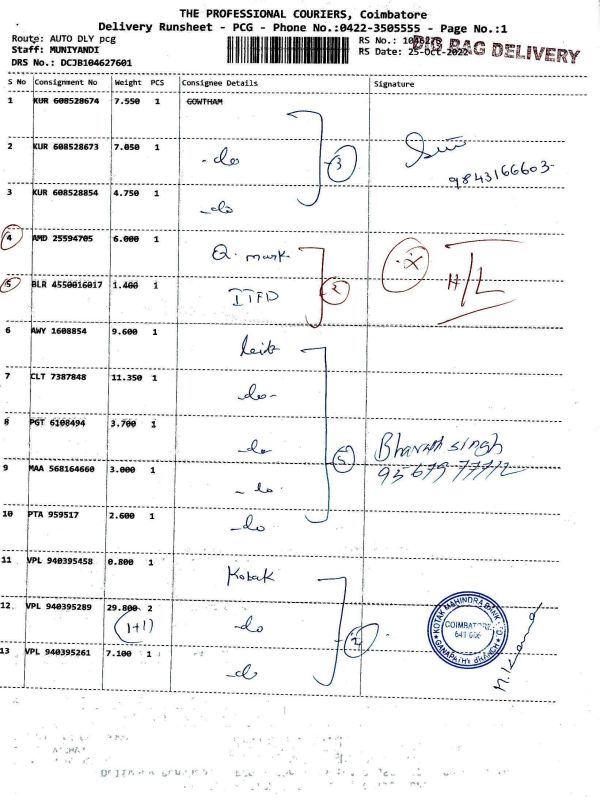 THE PROFESSIONAL COURIERS, Coimbatore
Delivery Runsheet - PCG - Phone No.:0422-3505555 - Page No.:1
Route: AUTO DLY pcg
Staff: MUNIYANDI
DRS No.: DCJB104627601
RS No.:
RS Date: 25-Oct-2022
BIG BAG DELIVERY
S No Consignment No Weight PCS Consignee Details Signature
1 KUR 608528674 7.550 1 GOWTHAM
2 KUR 608528673 7.050 1 -do
3
9843166603-
3 KUR 608528854 4.750 1 -do
4 AMD 25594705 6.000 1 Q. mark
X H/L
5 BLR 4550016017 1.400 1
2
6 AWY 1608854 9.600 1
7 CLT 7387848 11.350 1 -do-
8 PGT 6108494 3.700 1 -do
5 Bharath singh
9 MAA 568164660 3.000 1 -do
10 PTA 959517 2.600 1 -do
11 VPL 940395458 0.800 1 Kotak
12 VPL 940395289 29.800 2 -do
(1+1)
13 VPL 940395261 7.100 1 -do
KOTAK MAHINDRA BANK
COIMBATORE
641 006
GANAPATHY BRANCH